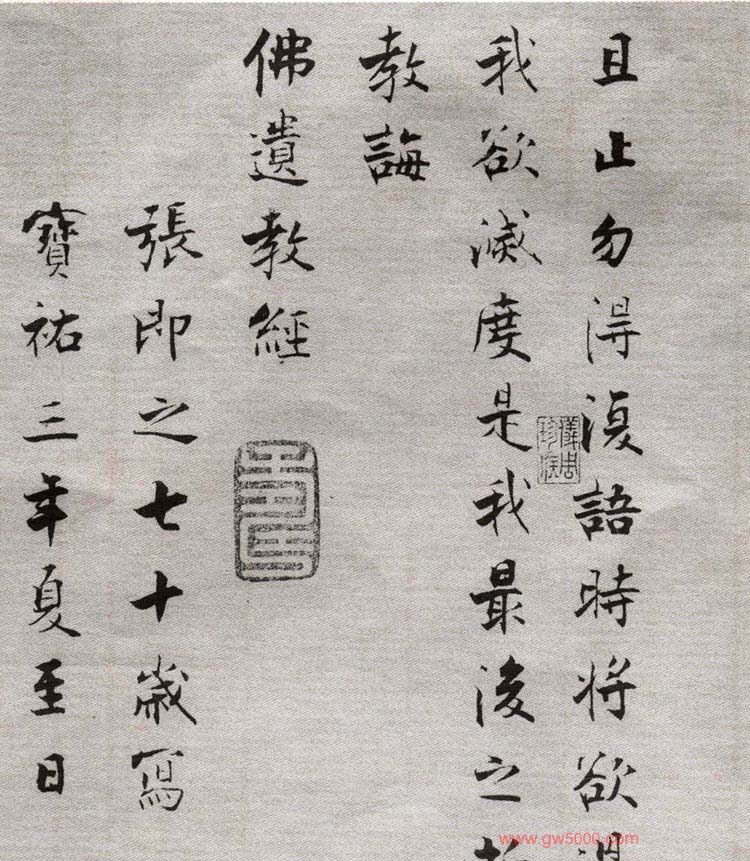 且止勿得復語時將欲過
我欲滅度是我最後之所
教誨
佛遺教經
張即之七十歲寫
寶祐三年夏至日
儀周珍藏
www.gw5000.com